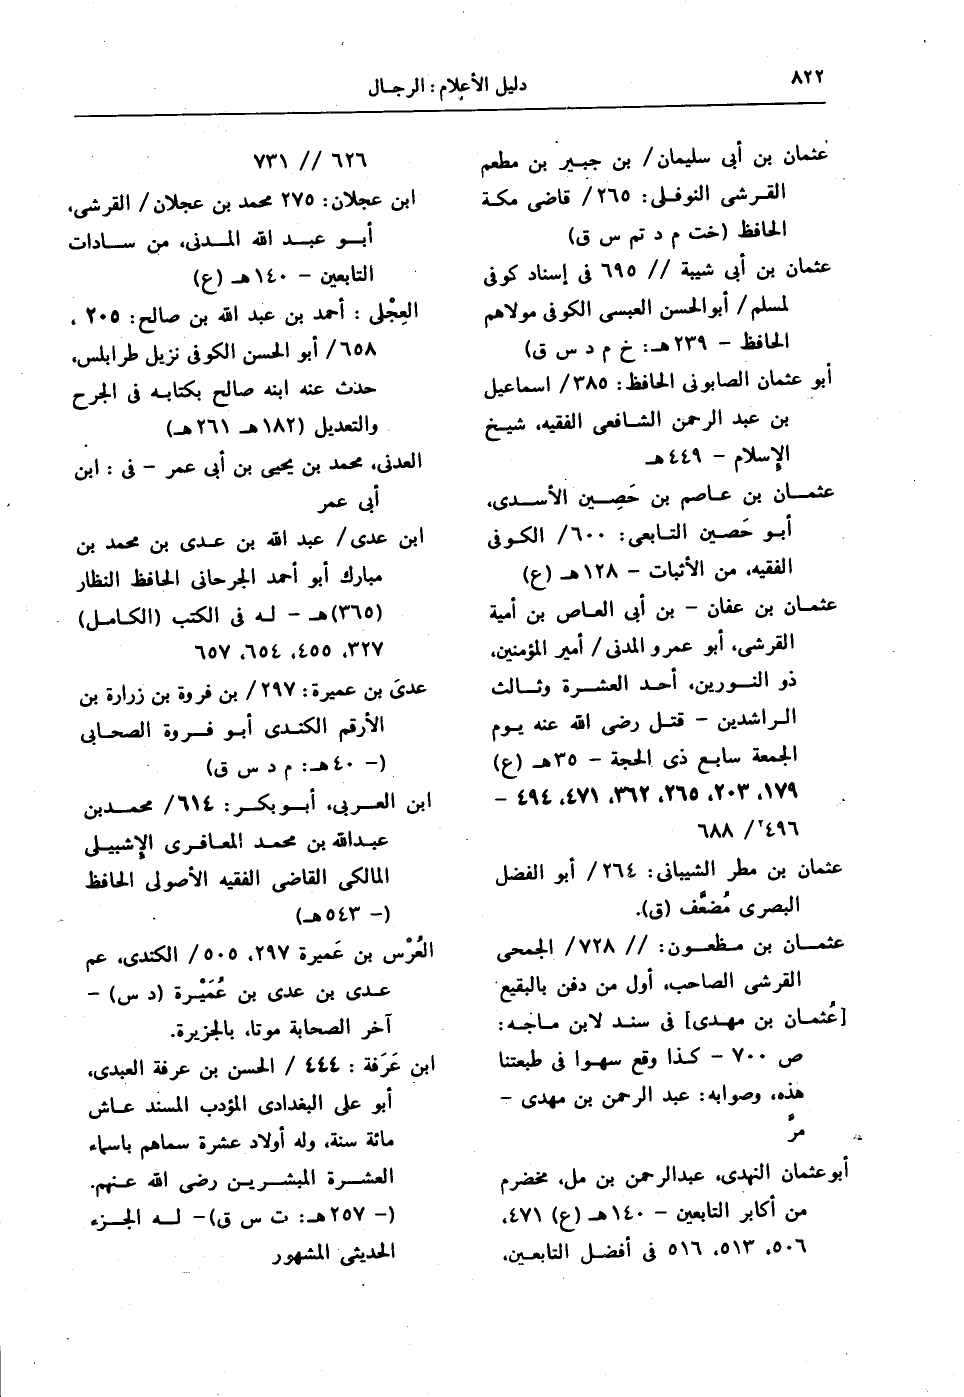 ٨٢٢
دليل الأعلام : الرجـال
عثمان بن أبى سليمان/ بن جبيـر بن مطعم
القرشى النوفلـى: ٢٦٥/ قاضى مكة
الحافظ (خت م د تم س ق)
عثمان بن أبى شيبة // ٦٩٥ فى إسناد كوفى
لمسلم/ أبوالحسن العبسى الكوفى مولاهم
الحافظ – ٢٣٩هـ: خ م د س ق)
أبو عثمان الصابونى الحافظ: ٣٨٥/ اسماعيل
بن عبد الرحمن الشـافعى الفقيه، شيـخ
الإسلام – ٤٤٩هـ
عثمـان بن عـاصم بن حَصِـين الأسـدى،
أبـو حَصين التـابعى: ٦٠٠/ الكـوفى
الفقيه، من الأثبات – ١٢٨هـ (ع)
عثمـان بن عفان – بن أبى العـاص بن أمية
القرشى، أبو عمرو المدنى/ أمير المؤمنين،
ذو النـورين، أحـد العشـرة وثـالث
الـراشدين – قتـل رضى الله عنه يـوم
الجمعة سابـع ذى الحجة – ٣٥هـ (ع)
١٧٩، ٢٠٣، ٢٦٥، ٣٦٢، ٤٧١، ٤٩٤ –
٤٩٦ّ/ ٦٨٨
عثمان بن مطر الشيبانى: ٢٦٤/ أبو الفضل
البصرى مُضعَّف (ق).
عثمـان بن مـظعـون: // ٧٢٨/ الجمحى
القرشى الصاحب، أول من دفن بالبقيع
[عُثمـان بن مهـدى] فى سنـد لابن مـاجه:
ص ٧٠٠ – كـذا وقع سهـوا فى طبعتنا
هذه، وصوابه: عبد الرحمن بن مهدى –
مرَّ
أبوعثمان النهدى، عبدالرحمن بن مل، مخضرم
من أكابر التابعين – ١٤٠هـ (ع) ٤٧١،
٥٠٦، ٥١٣، ٥١٦ فى أفضل التابعـين،
٦٢٦ // ٧٣١
ابن عجلان: ٢٧٥ محمد بن عجلان/ القرشى،
أبـو عبـد الله المـدنى، من سـادات
التابعين – ١٤٠هـ (ع)
العِجْلى : أحمد بن عبد الله بن صالح: ٢٠٥ ،
٦٥٨/ أبو الحسن الكوفى نزيل طرابلس،
حدث عنه ابنه صالح بكتابـه فى الجرح
والتعديل (١٨٢هـ ٢٦١هـ)
العدنى، محمد بن يحيى بن أبى عمر – فى : ابن
أبى عمر
ابن عدى/ عبـد الله بن عـدى بن محمد بن
مبارك أبو أحمد الجرحانى الحافظ النظار
(٣٦٥)هـ – لـه فى الكتب (الكـامـل)
٣٢٧، ٤٥٥، ٦٥٤، ٦٥٧
عدىّ بن عميرة: ٢٩٧/ بن فروة بن زرارة بن
الأرقم الكنـدى أبـو فـروة الصحـابى
(– ٤٠هـ: م د س ق)
ابن العـربي، أبـوبكـر: ٦١٤/ محمـدبن
عبـدالله بن محمـد المعـافرى الإشبيلى
المالكى القاضى الفقيه الأصولى الحافظ
(– ٥٤٣هـ)
العُرْس بن عَميرة ٢٩٧، ٥٠٥/ الكندى، عم
عـدى بن عدى بن عُمَيْـرة (د س) –
آخر الصحابة موتا، بالجزيرة.
ابن عَرَفة : ٤٤٤ / الحسن بن عرفة العبدى،
أبو على البغدادى المؤدب المسند عـاش
مائة سنة، وله أولاد عشرة سماهم باسماء
العشـرة المبشريـن رضى الله عـنهم.
(– ٢٥٧هـ: ت س ق)– لـه الجـزء
الحديثى المشهور